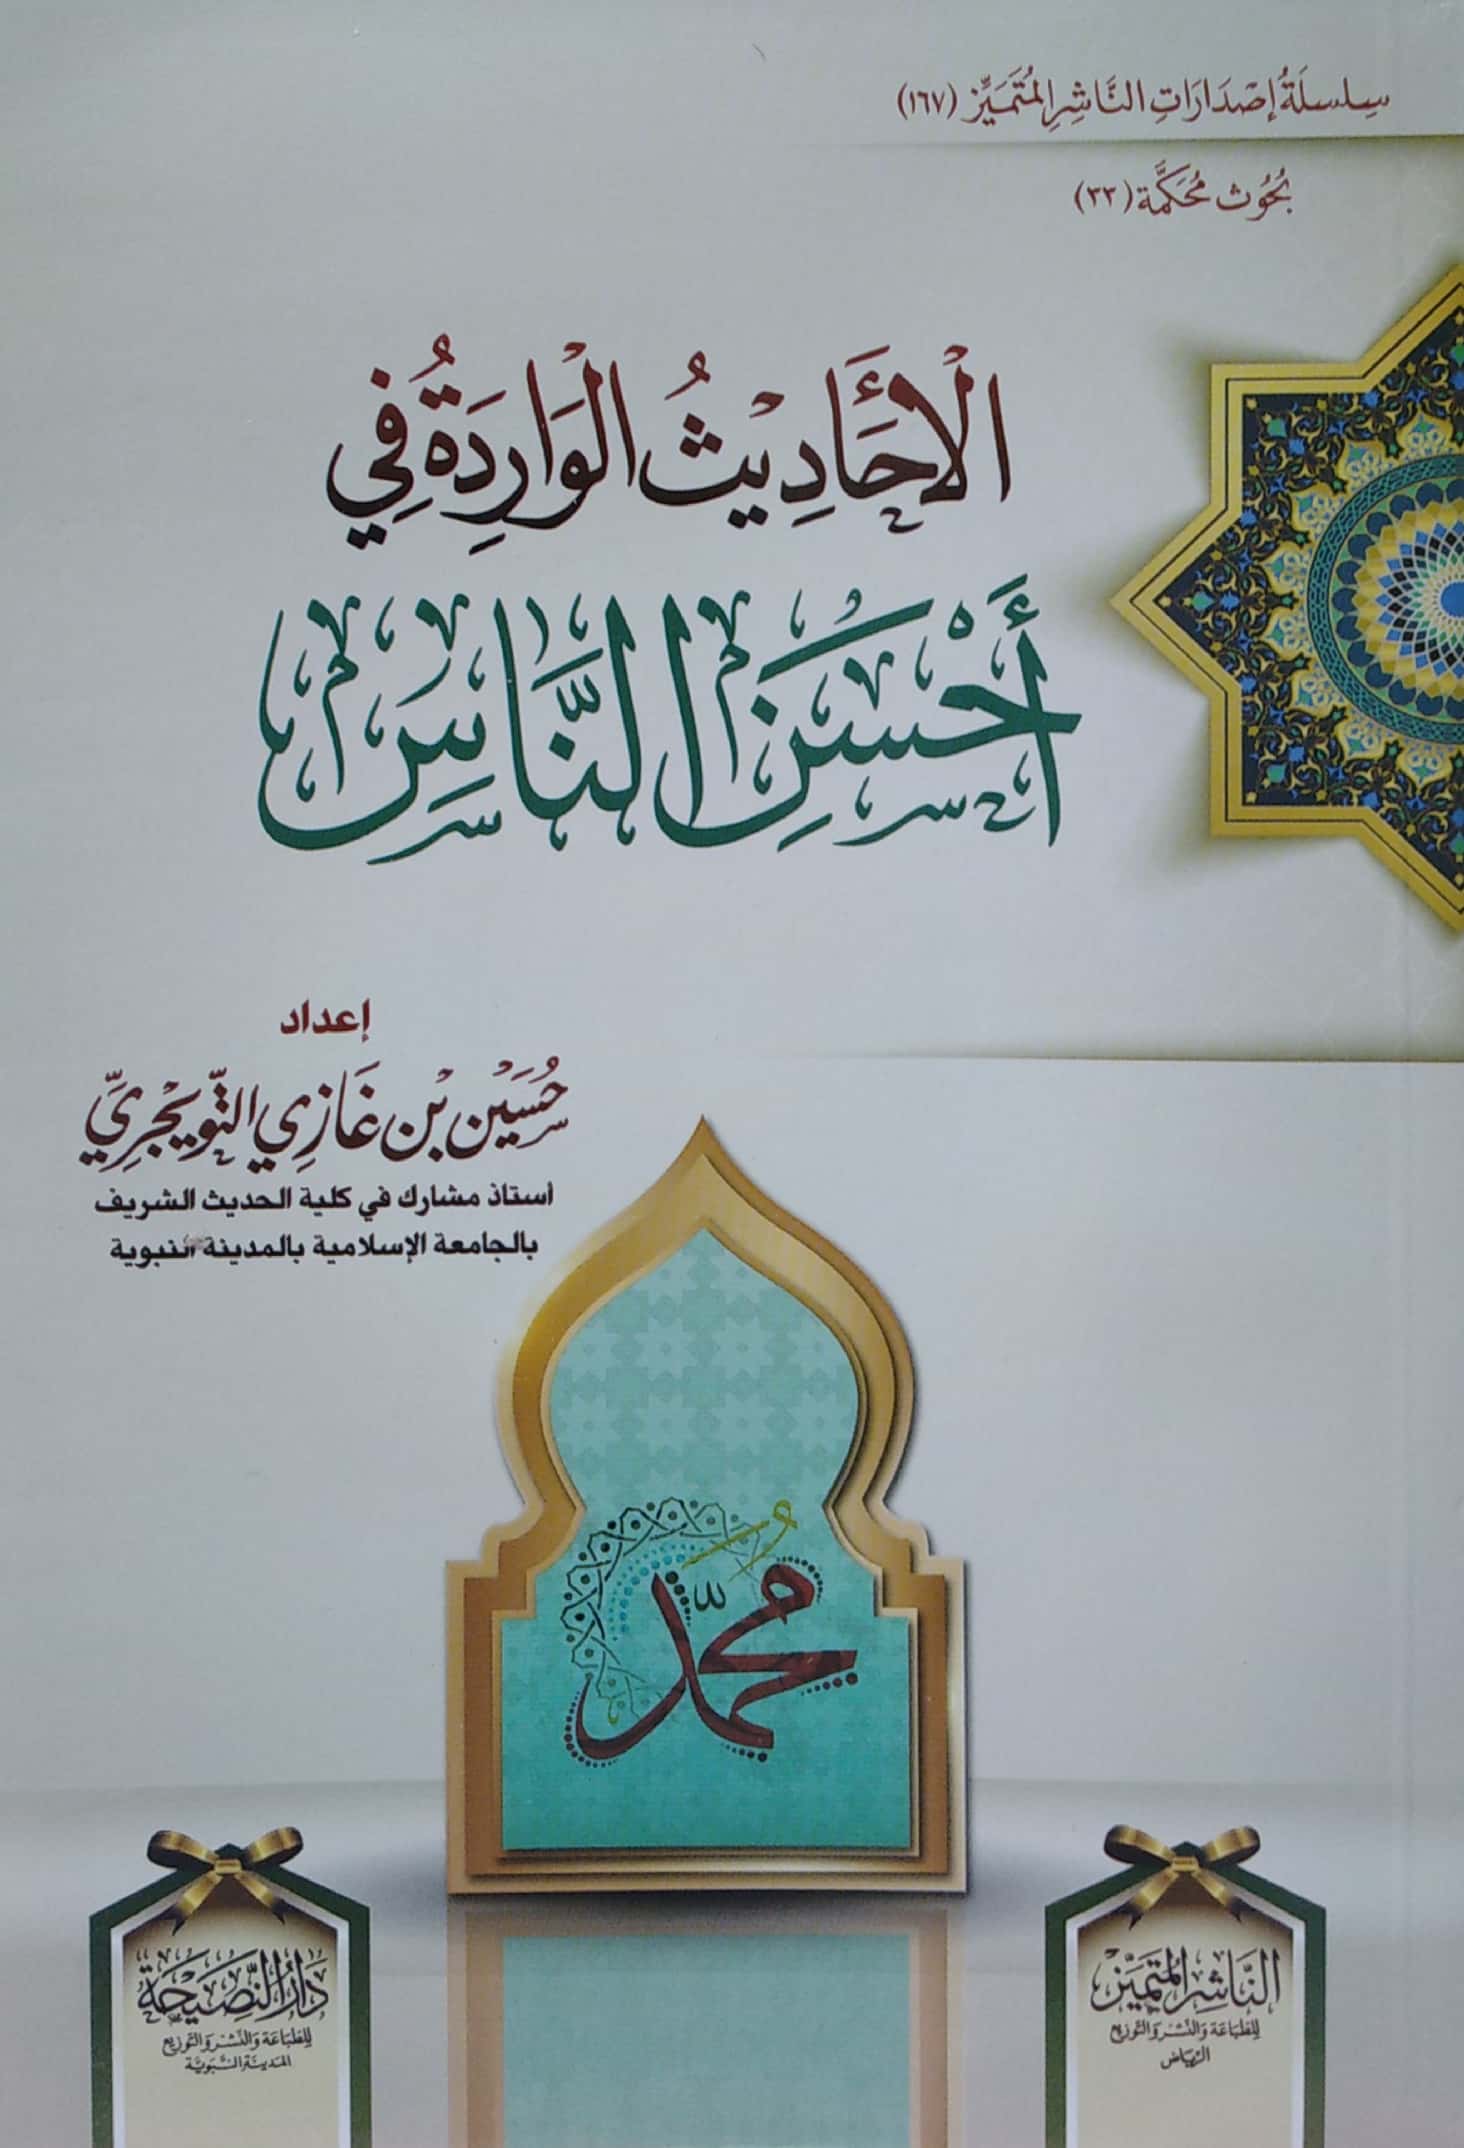 سِلسلَةُ إصْدَارَاتِ النَّاشِرِ المُتَمَيِّزِ (١٦٧)
بُحُوْث مُحَكَّمَة (٣٣)
الْأَحَادِيْثُ الْوَارِدَةُ فِي
أَحْسَنِ النَّاسِ
إعداد
حُسَيْن بْن غَازِي التُّوَيْجِرِيّ
أستاذ مشارك في كلية الحديث الشريف
بالجامعة الإسلامية بالمدينة النبوية
مُحَمَّد
النَّاشِرُ المُتَمَيِّزُ
لِلطِّبَاعَةِ وَالنَّشْرِ وَالتَّوْزِيعِ
الرِّيَاض
دَارُ النَّصِيْحَةِ
لِلطِّبَاعَةِ وَالنَّشْرِ وَالتَّوْزِيعِ
المَدِينَة النَّبَوِيَّة